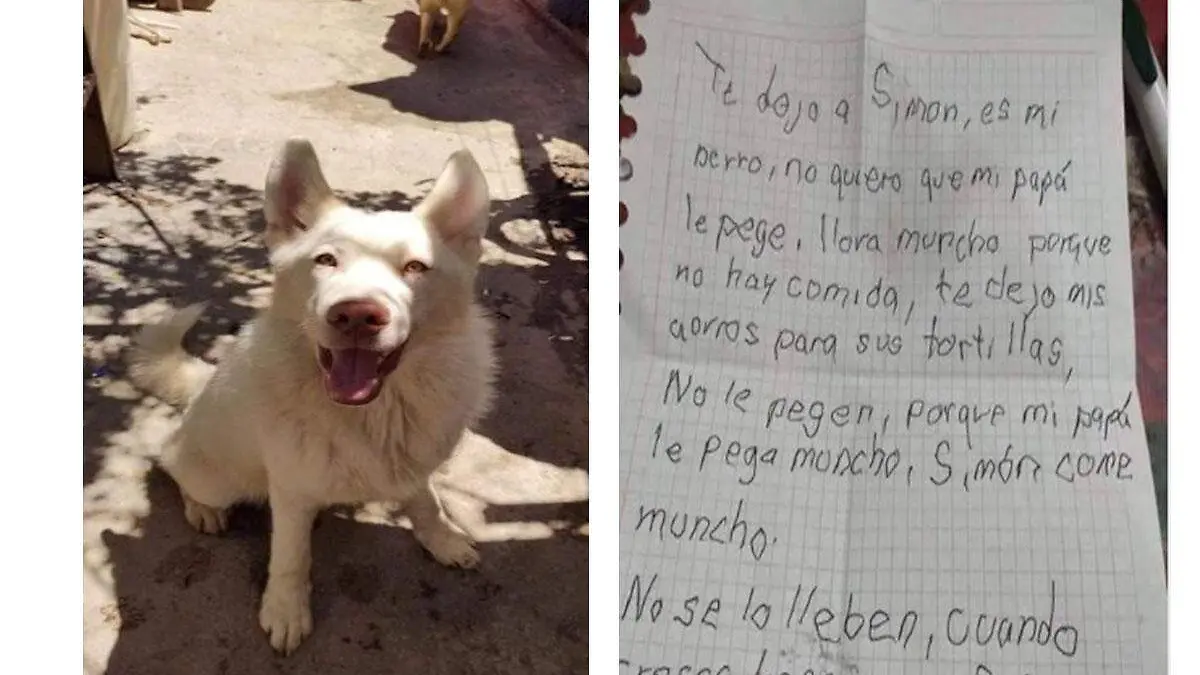 Te dejo a Simon, es mi
perro, no quiero que mi papá
le pege, llora muncho porque
no hay comida, te dejo mis
aorros para sus tortillas,
No le pegen, porque mi papá
le pega muncho, Simón come
muncho.
No se lo lleben, cuando